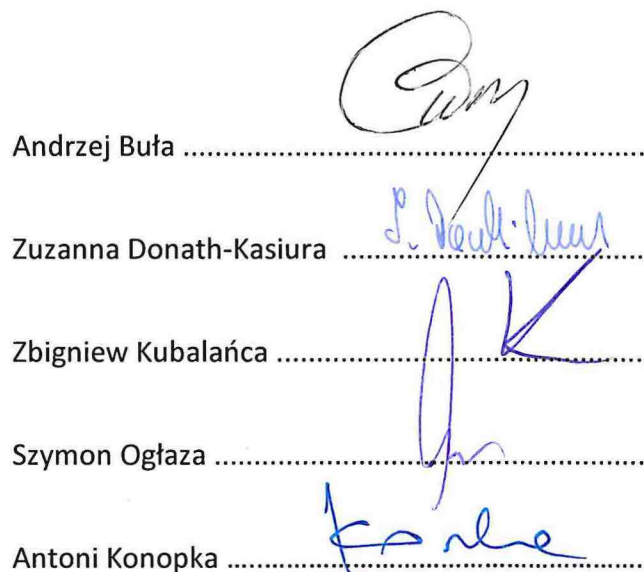 Andrzej Buła ..........................................................
Zuzanna Donath-Kasiura ......................................
Zbigniew Kubalańca .............................................
Szymon Ogłaza .....................................................
Antoni Konopka ...................................................